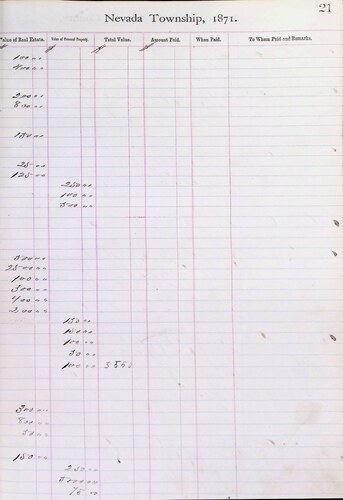 21
Nevada Township, 1871.
Value of Real Estate. Value of Personal Property. Total Value. Amount Paid. When Paid. To Whom Paid and Remarks.
100 00
400 00
200 00
800 00
150 00
25 00
125 00
250 00
100 00
500 00
500 00
2500 00
100 00
300 00
400 00
200 00
150 00
100 00
50 00
100 00 5550
300 00
800 00
50 00
150 00
250 00
75 00